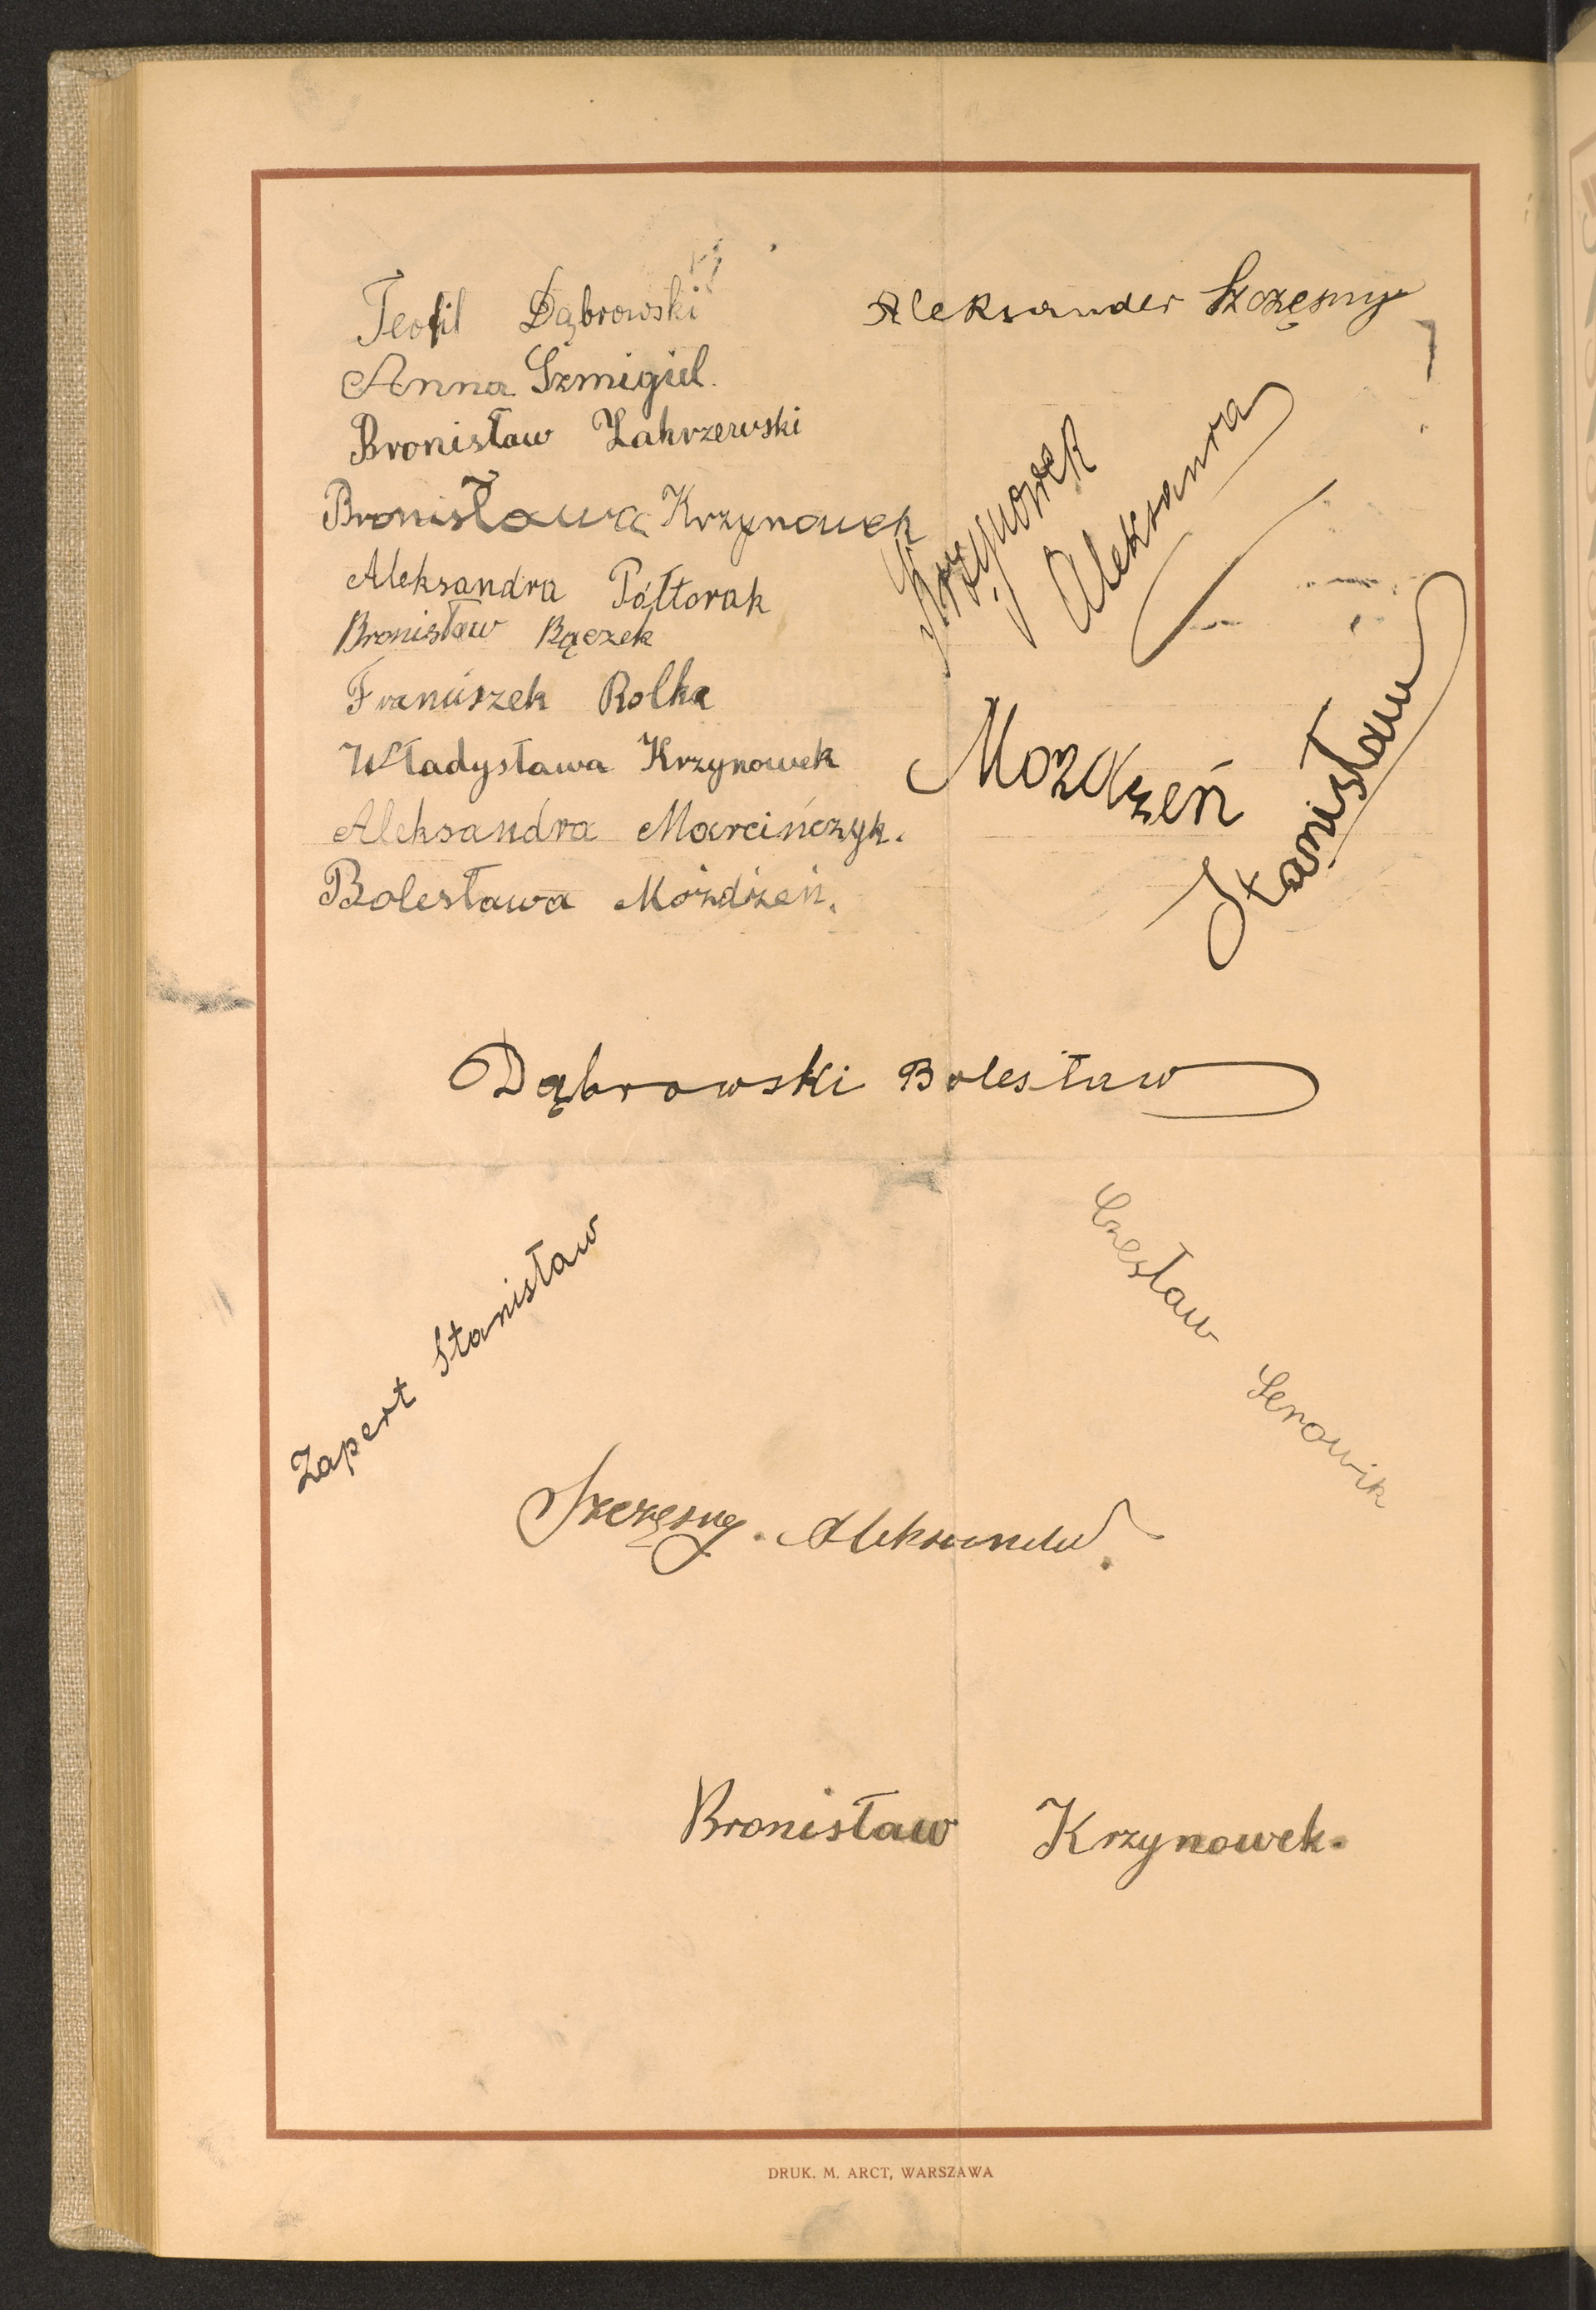 Teofil Dąbrowski
Anna Szmigiel.
Bronisław Zakrzewski
Bronisława Krzynowek
Aleksandra Półtorak
Bronisław Bączek
Franciszek Rolka
Władysława Krzynowek
Aleksandra Marcińczyk.
Bolesława Możdżeń.
Aleksander Szczęsny
Krzynowek
Aleksanra
Mozdzeń
Stanisław
Dąbrowski Bolesław
Zapert Stanisław
Czesław Serowik
Szczęsny. Aleksander.
Bronisław Krzynowek.
DRUK. M. ARCT, WARSZAWA